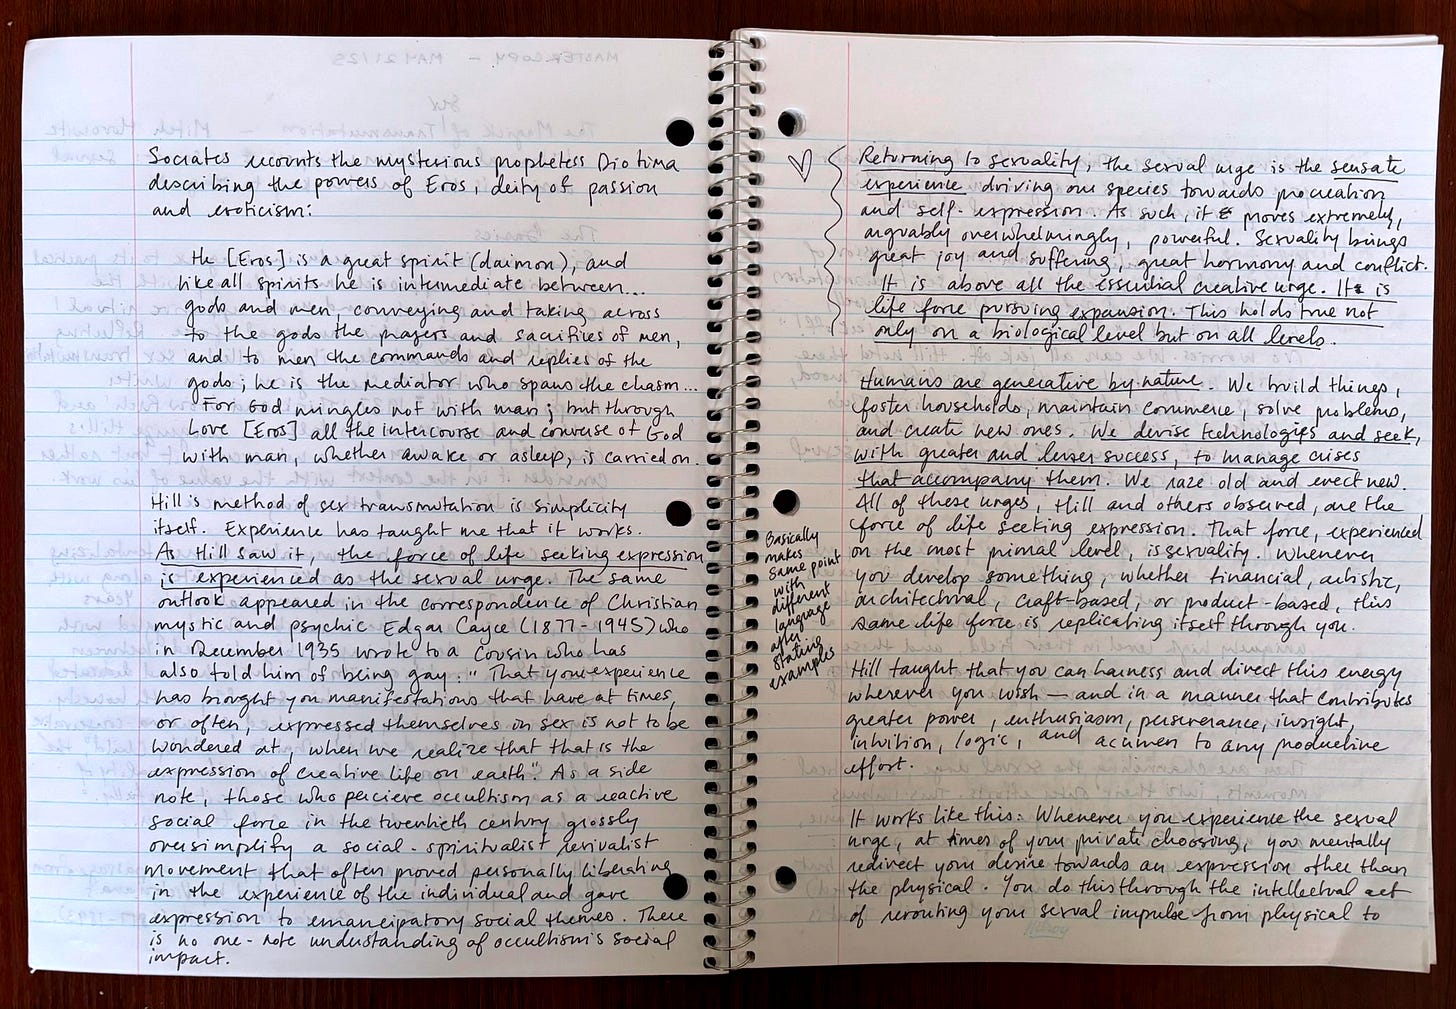 Socrates recounts the mysterious prophetess Diotima
describing the powers of Eros, deity of passion
and eroticism:
He [Eros] is a great spirit (daimon), and
like all spirits he is intermediate between...
gods and men, conveying and taking across
to the gods the prayers and sacrifices of men,
and to men the commands and replies of the
gods; he is the mediator who spans the chasm...
For God mingles not with man; but through
Love [Eros] all the intercourse and converse of God
with man, whether awake or asleep, is carried on.
Hill's method of sex transmutation is simplicity
itself. Experience has taught me that it works.
As Hill saw it, the force of life seeking expression
is experienced as the sexual urge. The same
outlook appeared in the correspondence of Christian
mystic and psychic Edgar Cayce (1877-1945) who
in December 1935 wrote to a cousin who has
also told him of being gay: "That your experience
has brought you manifestations that have at times,
or often, expressed themselves in sex is not to be
wondered at, when we realize that that is the
expression of creative life on earth". As a side
note, those who percieve occultism as a reactive
social force in the twentieth century grossly
oversimplify a social-spiritualist revivalist
movement that often proved personally liberating
in the experience of the individual and gave
expression to emancipatory social themes. There
is no one-note understanding of occultism's social
impact.
Returning to sexuality, the sexual urge is the sensate
experience driving our species towards procreation
and self-expression. As such, it proves extremely,
arguably overwhelmingly, powerful. Sexuality brings
great joy and suffering, great harmony and conflict.
It is above all the essential creative urge. It is
life force pursuing expansion. This holds true not
only on a biological level but on all levels.
Humans are generative by nature. We build things,
foster households, maintain commerce, solve problems,
and create new ones. We devise technologies and seek,
with greater and lesser success, to manage crises
that accompany them. We raze old and erect new.
All of these urges, Hill and others observed, are the
force of life seeking expression. That force, experienced
on the most primal level, is sexuality. Whenever
you develop something, whether financial, artistic,
architectural, craft-based, or product-based, this
same life force is replicating itself through you.
Basically
makes
same point
with
different
language
after
stating
examples
Hill taught that you can harness and direct this energy
wherever you wish — and in a manner that contributes
greater power, enthusiasm, perseverance, insight,
intuition, logic, and acumen to any productive
effort.
It works like this: Whenever you experience the sexual
urge, at times of your private choosing, you mentally
redirect your desire towards an expression other than
the physical. You do this through the intellectual act
of rerouting your sexual impulse from physical to